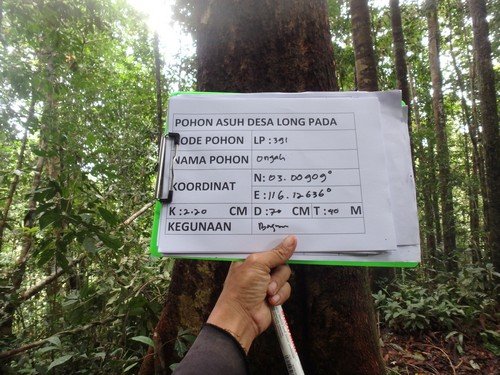 POHON ASUH DESA LONG PADA
KODE POHON LP : 391
NAMA POHON
KOORDINAT N: 03.00909°
E: 116.12636°
K : 2.20 CM D : 70 CM T : 40 M
KEGUNAAN